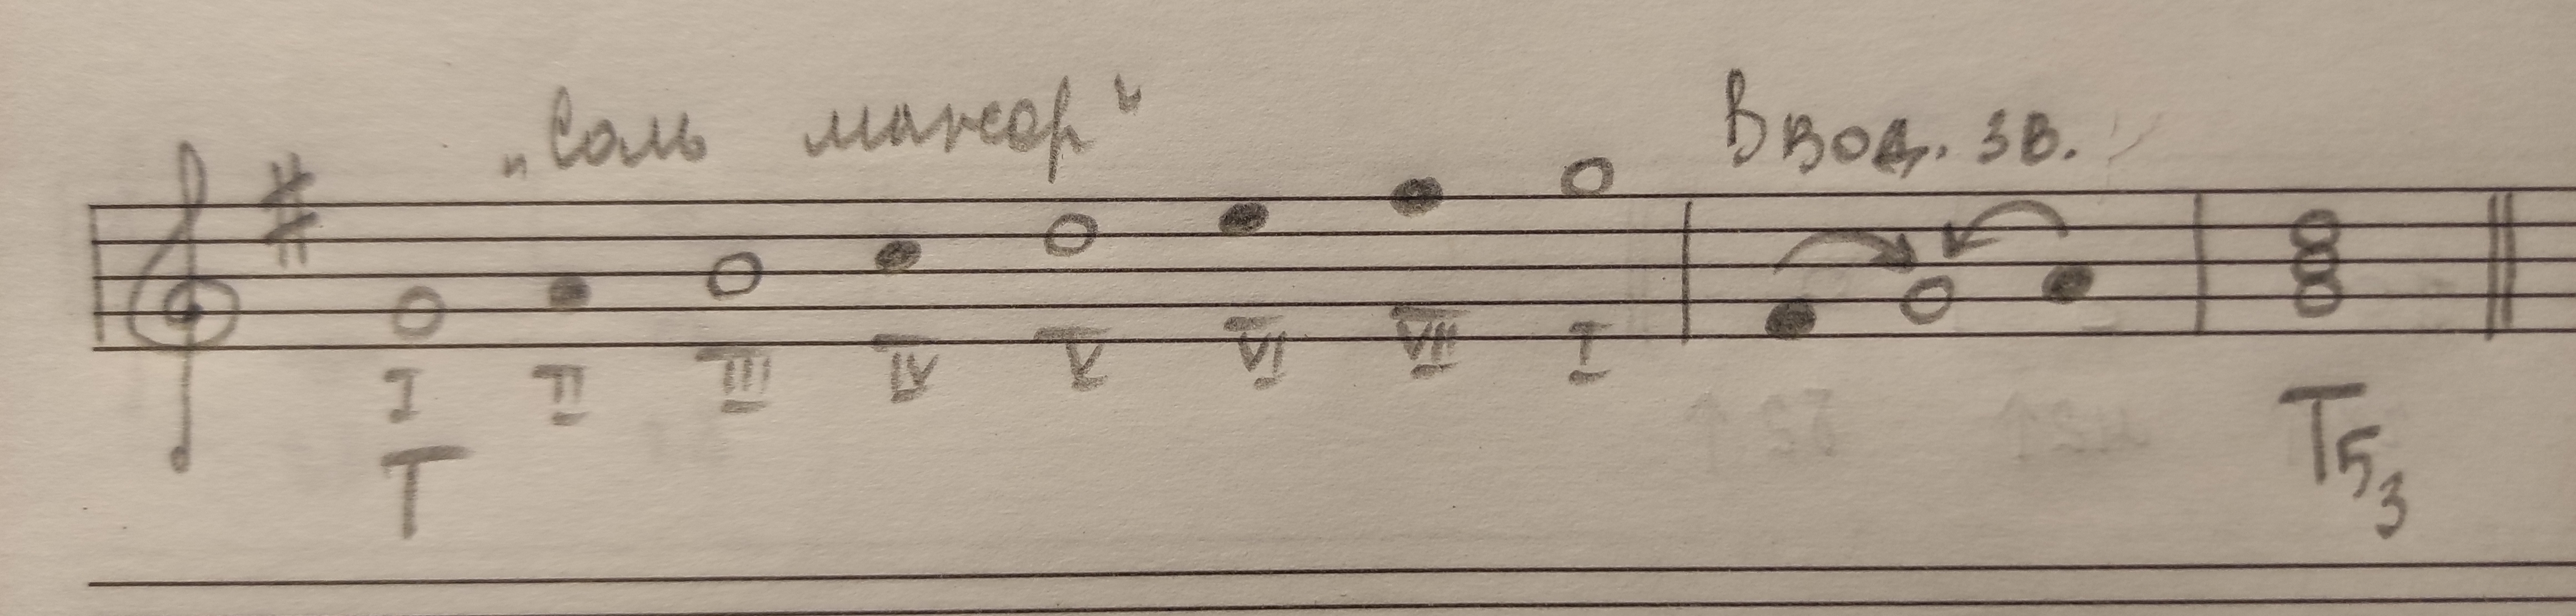 „Соль мажор" Ввод. зв.
I II III IV V VI VII I
T T53